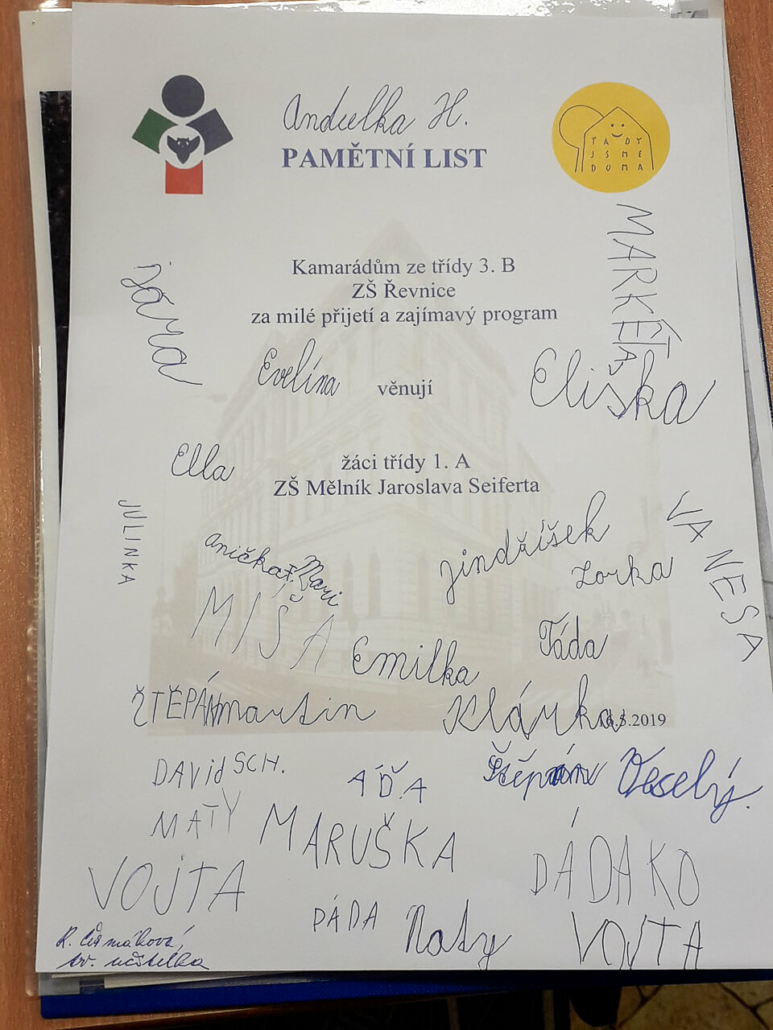 Andulka H.
PAMĚTNÍ LIST
TADY
JSME
DOMA
MARKÉTA
Kamarádům ze třídy 3. B
ZŠ Řevnice
za milé přijetí a zajímavý program
Jára
Evelína
věnují
Eliška
Ella
žáci třídy 1. A
ZŠ Mělník Jaroslava Seiferta
JULINKA
VANESA
Anička F.
Mari
Jindříšek
Lorka
MIŠA
Emilka
Táda
ŽTĚPÁN
martin
Klárka
.5.2019
DAViD SCH.
AĎA
Štěpán Veselý.
MATY
MARUŠKA
VOJTA
DÁDA KO
PÁDA
Naty
VOJTA
tv. učitelka